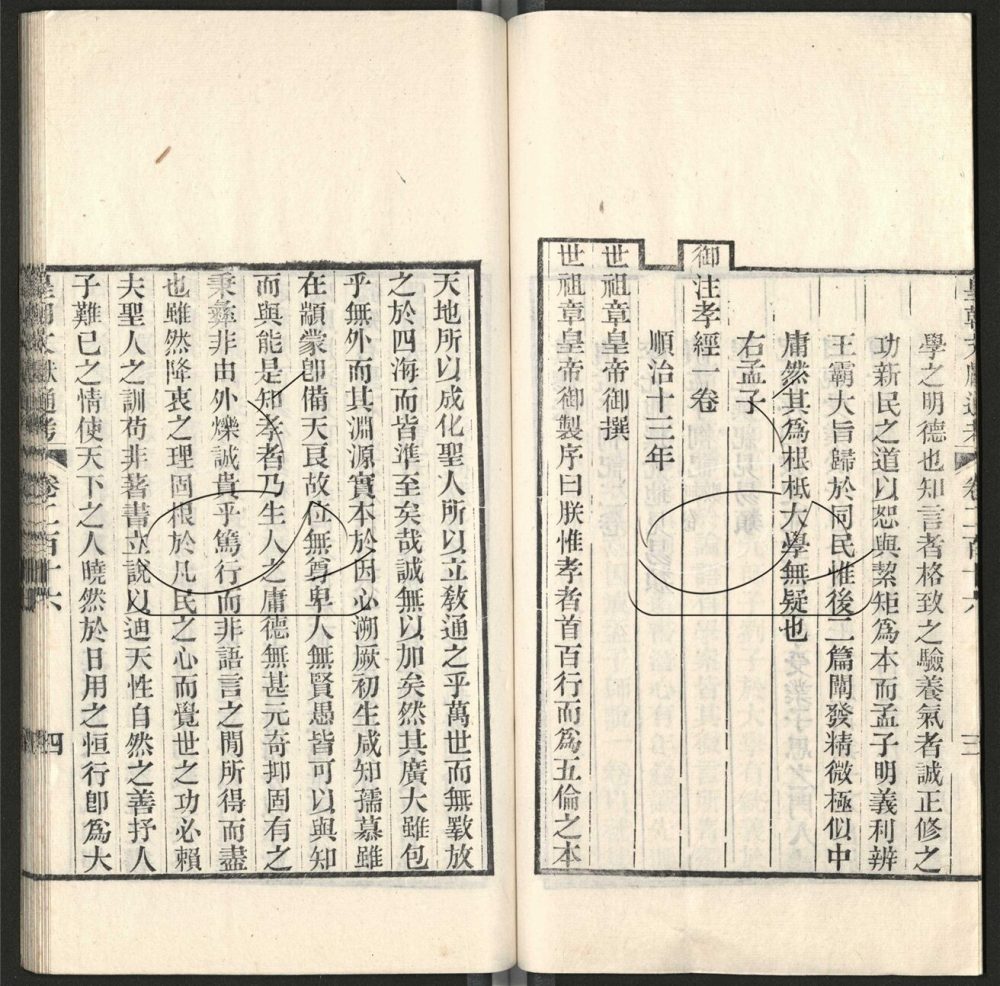 皇朝文獻通考 卷二百十六 三
學之明德也知言者格致之驗養氣者誠正修之
功新民之道以恕與絜矩爲本而孟子明義利辨
王霸大旨歸於同民惟後二篇闡發精微極似中
庸然其爲根柢大學無疑也
右孟子
御注孝經一卷
順治十三年
世祖章皇帝御撰
世祖章皇帝御製序曰朕惟孝者首百行而爲五倫之本
天地所以成化聖人所以立敎通之乎萬世而無斁放
之於四海而皆準至矣哉誠無以加矣然其廣大雖包
乎無外而其淵源實本於因心溯厥初生咸知孺慕雖
在顓蒙卽備天良故位無尊卑人無賢愚皆可以與知
而與能是知孝者乃生人之庸德無甚元奇抑固有之
秉彝非由外爍誠貴乎篤行而非語言之閒所得而盡
也雖然降衷之理固根於凡民之心而覺世之功必賴
夫聖人之訓苟非著書立說以迪天性自然之善抒人
子難已之情使天下之人曉然於日用之恒行卽爲大
皇朝文獻通考 卷二百十六 四